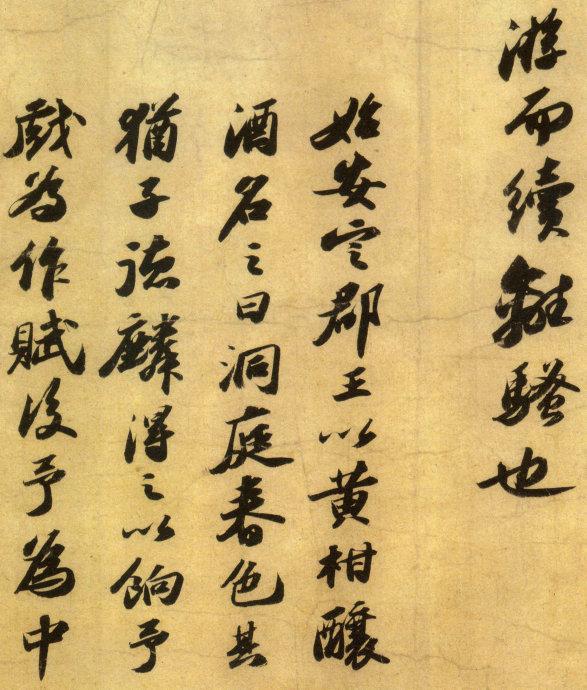 游而續離騷也
始安定郡王以黃柑釀
酒名之曰洞庭春色其
猶子德麟得之以餉予
戲為作賦後予為中